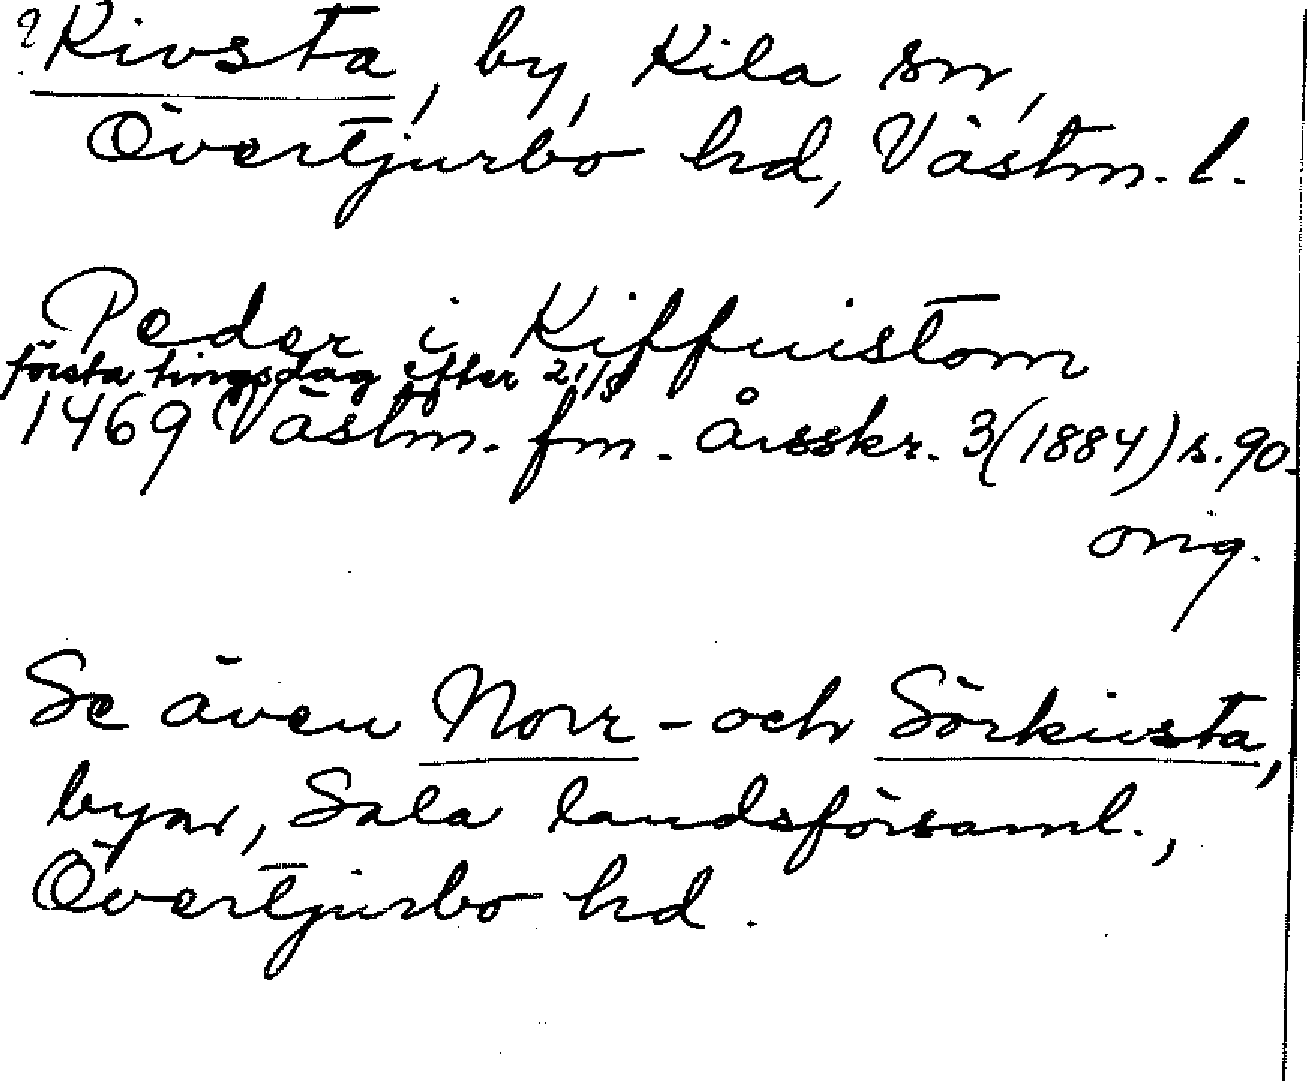 ? Kivsta, by, Kila sn,
Övertjurbo hd, Västm. l.
Peder i Kiffuistom
första tingsdag efter 21/8
1469 Västm. fm. årsskr. 3 (1884) s. 90.
orig.
Se även Norr- och Sörkivsta,
byar, Sala landsförsaml.,
Övertjurbo hd.